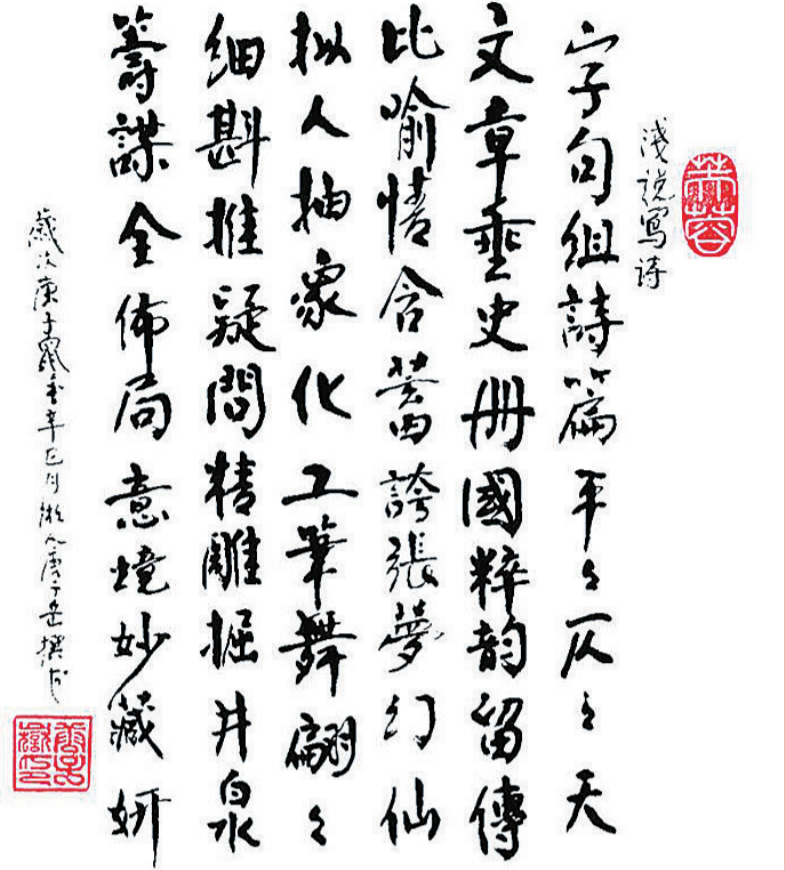 浅説寫詩
字子句组詩篇平々仄々天
文章垂史册國粹韵留傳
比喻情含蓄誇張夢幻仙
拟人抽象化工筆舞翩々
细斟推疑問精雕掘井泉
籌謀全佈局意境妙藏妍
歲次庚子鼠年辛巳月湘人唐子岳撰书